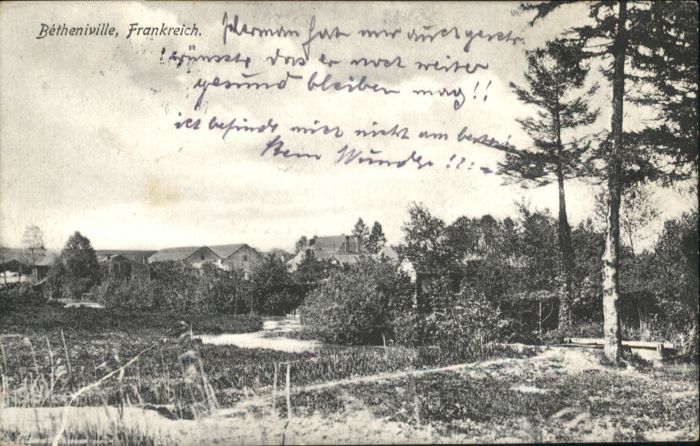 Bétheniville, Frankreich.
Herman hat mir auch geschr.
wünsche das er noch weiter
gesund bleiben mag!!
ich befinde mich nicht am besten!
Kein Wunder!!